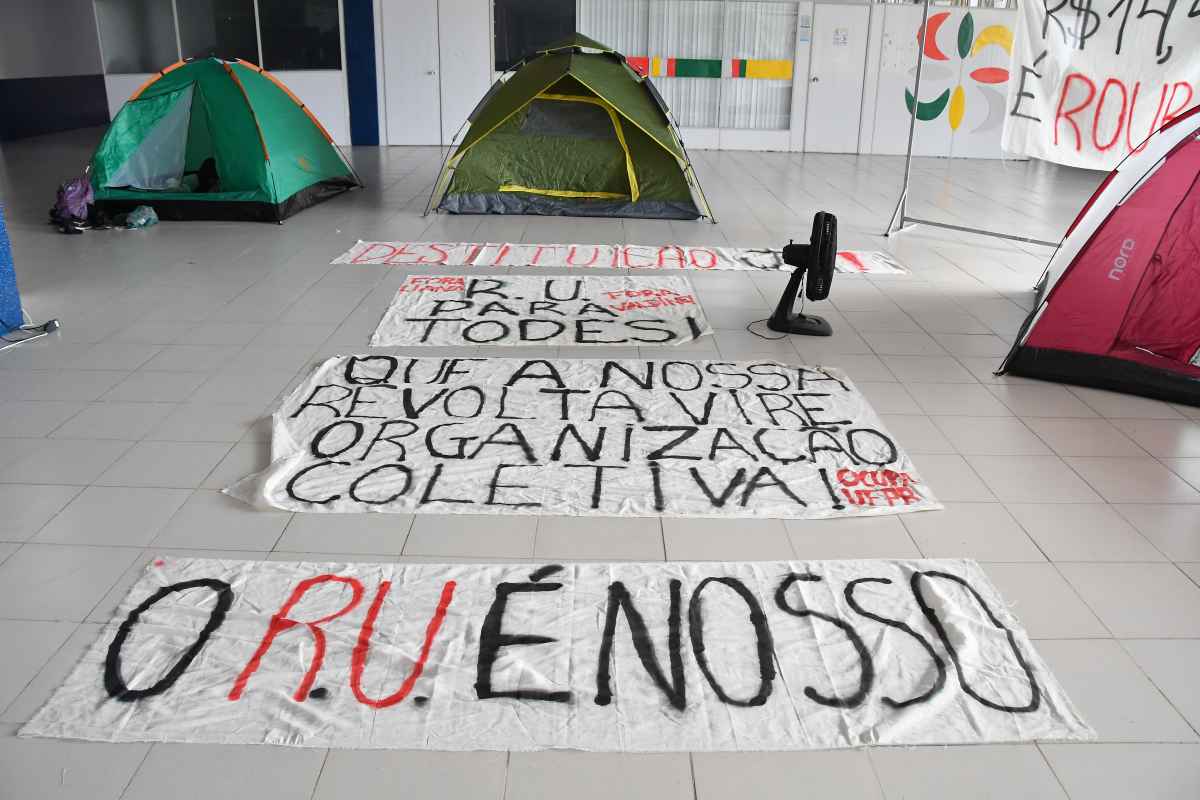 R$14,
É ROUB
nord
DESTITUIÇÃO JÁ!
FORA
R. U.
FORA
PARA
TODES!
QUE A NOSSA
REVOLTA VIRE
ORGANIZAÇÃO
COLETIVA!
OCUPA
UFPR
O R.U. É NOSSO